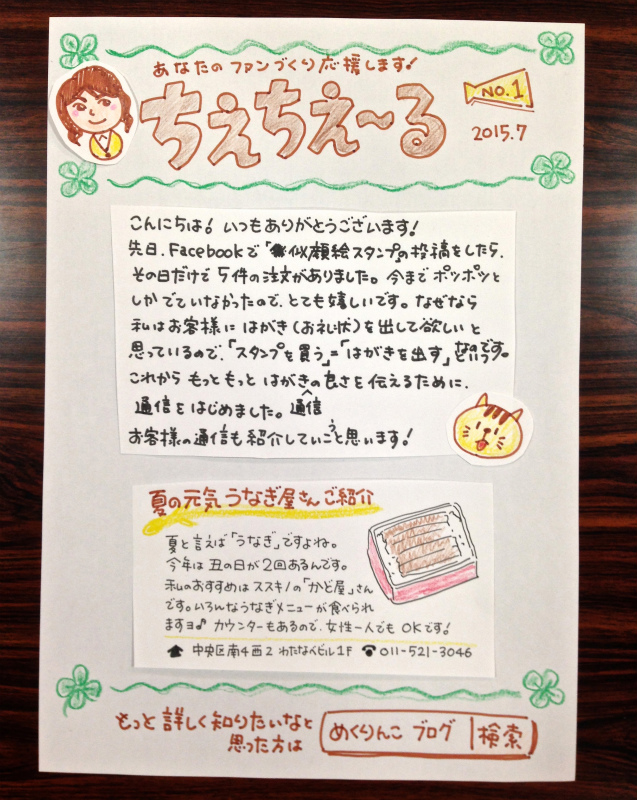 あなたのファンづくり応援します!
ちえちえ〜る
NO.1
2015.7
こんにちは! いつもありがとうございます!
先日、Facebookで「似顔絵スタンプ」の投稿をしたら、
その日だけで5件の注文がありました。今までポツポツと
しかでていなかったので、とても嬉しいです。なぜなら
私はお客様にはがき(お礼状)を出して欲しいと
思っているので、「スタンプを買う」=「はがきを出す」なのです。
これからもっともっとはがきの良さを伝えるために、
通信をはじめました。通信
お客様の通信も紹介していこうと思います!
夏の元気うなぎ屋さんご紹介
夏と言えば「うなぎ」ですよね。
今年は丑の日が2回あるんです。
私のおすすめはススキノの「かど屋」さん
です。いろんなうなぎメニューが食べられ
ますヨ♪ カウンターもあるので、女性一人でもOKです!
中央区南4西2 わたなべビル1F ☎011-521-3046
もっと詳しく知りたいなと
思った方は
めくりんこ ブログ 検索